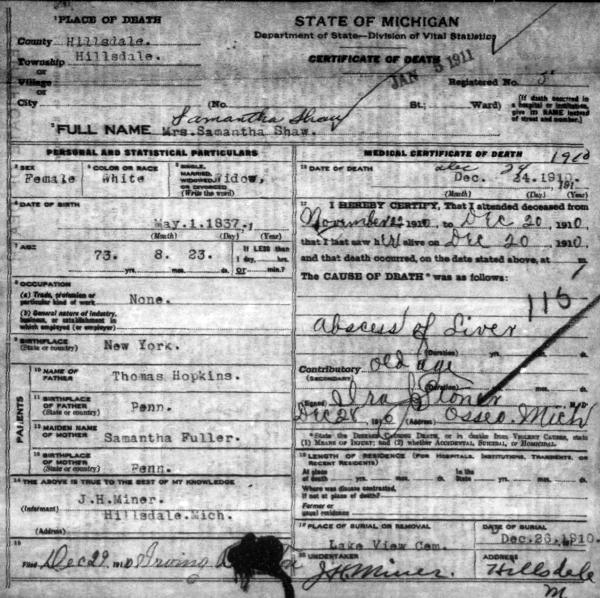 PLACE OF DEATH
County Hillsdale.
Township Hillsdale.
or
Village
or
City
STATE OF MICHIGAN
Department of State—Division of Vital Statistics
CERTIFICATE OF DEATH
JAN 5 1911
Registered No. 5
(No. St.; Ward)
[If death occurred in
a hospital or institution,
give its NAME instead
of street and number.]
Samantha Shaw
FULL NAME Mrs.Samantha Shaw.
PERSONAL AND STATISTICAL PARTICULARS
SEX
Female
COLOR OR RACE
White
SINGLE,
MARRIED,
WIDOWED,
OR DIVORCED
(Write the word)
Widow,
DATE OF BIRTH
May.1.1837.,
(Month) (Day) (Year)
AGE
73. 8. 23.
yrs. mos. ds.
If LESS than
1 day, hrs.
or min.?
OCCUPATION
(a) Trade, profession or
particular kind of work
None.
(b) General nature of industry,
business, or establishment in
which employed (or employer)
BIRTHPLACE
(State or country)
New York.
PARENTS
10 NAME OF
FATHER
Thomas Hopkins.
11 BIRTHPLACE
OF FATHER
(State or country)
Penn.
12 MAIDEN NAME
OF MOTHER
Samantha Fuller.
13 BIRTHPLACE
OF MOTHER
(State or country)
Penn.
14 THE ABOVE IS TRUE TO THE BEST OF MY KNOWLEDGE
(Informant) J.H.Miner.
Hillsdale.Mich.
(Address)
15
Filed Dec 29 1910 Irving
MEDICAL CERTIFICATE OF DEATH
1910
DATE OF DEATH
Dec 24
Dec. 24.1910.
191
(Month) (Day) (Year)
I HEREBY CERTIFY, That I attended deceased from
November 22 1910, to Dec 20, 1910
that I last saw her alive on Dec 20 1910.
and that death occurred, on the date stated above, at m
The CAUSE OF DEATH* was as follows:
115
abscess of Liver
(Duration) yrs. mos. ds.
Contributory old age
(SECONDARY)
(Duration) yrs. mos. ds.
(Signed) Ira Stoner M.D.
Dec 28, 1910 (Address) Osseo Mich
*State the DISEASE CAUSING DEATH, or in deaths from VIOLENT CAUSES, state
(1) MEANS OF INJURY; and (2) whether ACCIDENTAL SUICIDAL, or HOMICIDAL.
LENGTH OF RESIDENCE (FOR HOSPITALS, INSTITUTIONS, TRANSIENTS, OR
RECENT RESIDENTS)
At place
of death yrs. mos. ds.
In the
State yrs. mos. ds.
Where was disease contracted,
if not at place of death?
Former or
usual residence
PLACE OF BURIAL OR REMOVAL
Lake View Cem.
DATE OF BURIAL
Dec.26.1910.
UNDERTAKER
J.H.Miner.
ADDRESS
Hillsdale
M